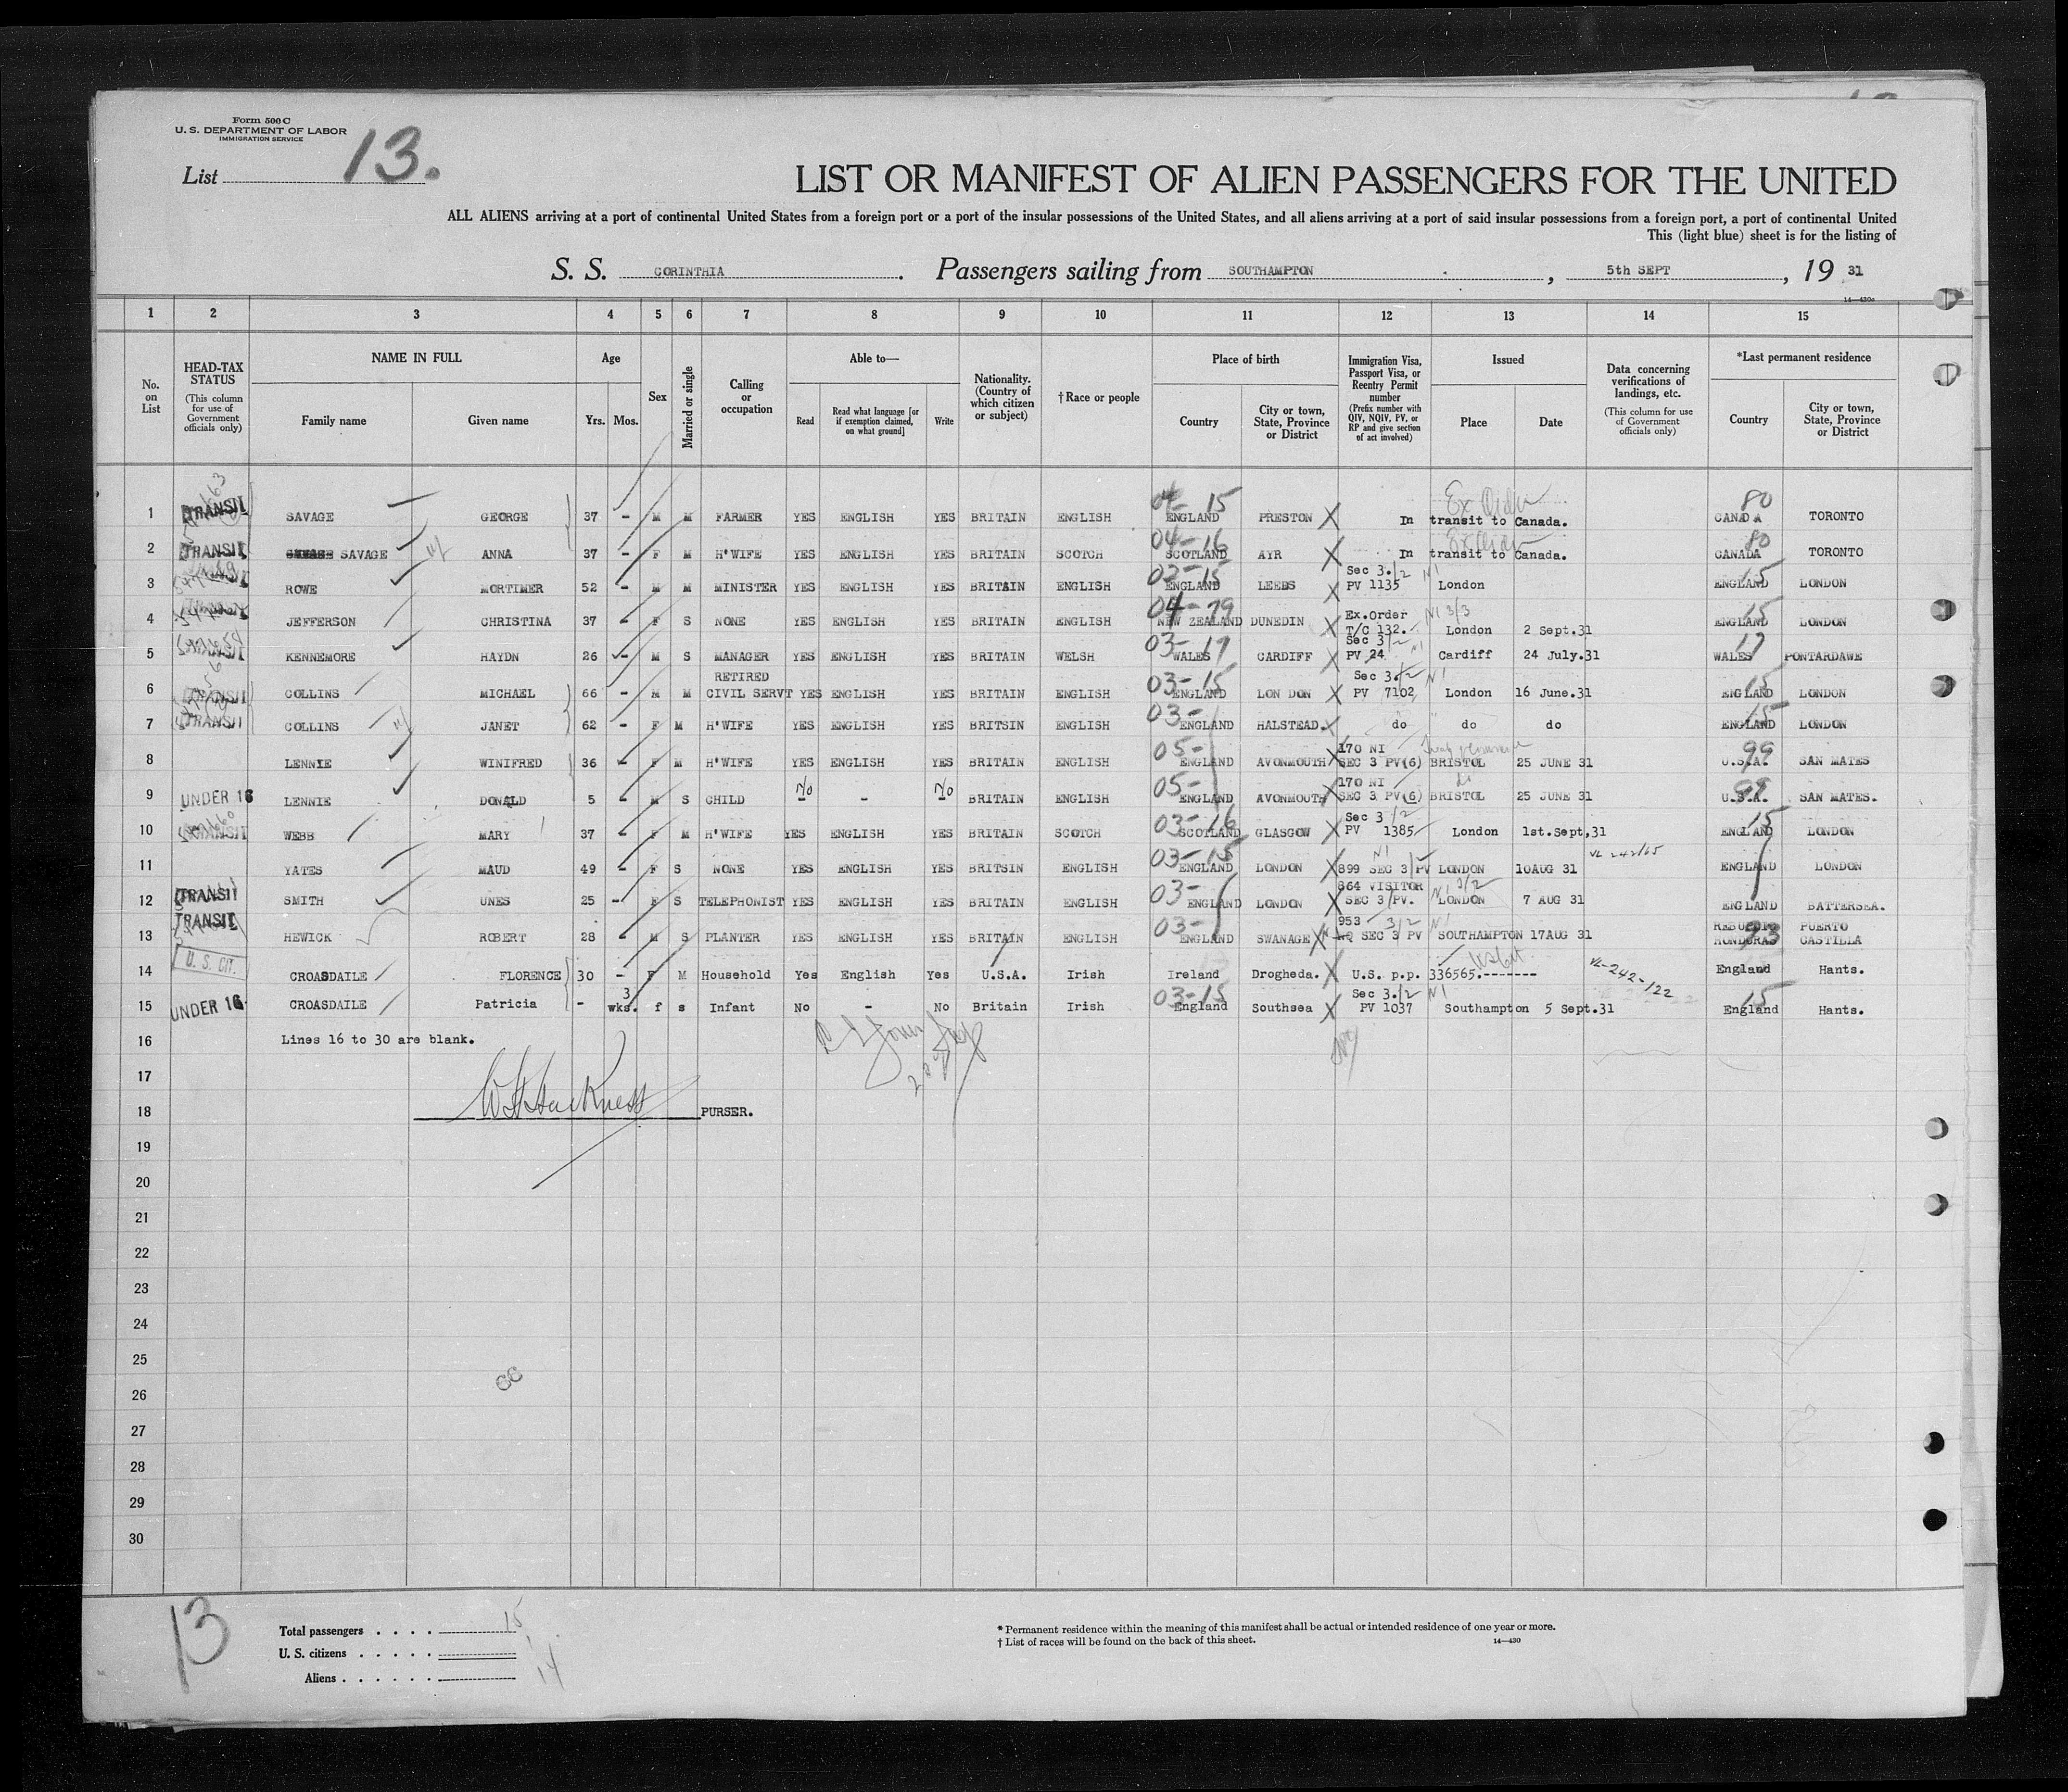 Form 500 C
U. S. DEPARTMENT OF LABOR
IMMIGRATION SERVICE
List 13.
LIST OR MANIFEST OF ALIEN PASSENGERS FOR THE UNITED
ALL ALIENS arriving at a port of continental United States from a foreign port or a port of the insular possessions of the United States, and all aliens arriving at a port of said insular possessions from a foreign port, a port of continental United
This (light blue) sheet is for the listing of
S. S. CORINTHIA. Passengers sailing from SOUTHAMPTON, 5th SEPT, 19 31
14—430c
1 2 3 4 5 6 7 8 9 10 11 12 13 14 15
No. on List
HEAD-TAX STATUS (This column for use of Government officials only)
NAME IN FULL Family name Given name
Age Yrs. Mos.
Sex
Married or single
Calling or occupation
Able to— Read Read what language [or if exemption claimed, on what ground] Write
Nationality. (Country of which citizen or subject)
† Race or people
Place of birth Country City or town, State, Province or District
Immigration Visa, Passport Visa, or Reentry Permit number (Prefix number with QIV, NQIV, PV, or RP and give section of act involved)
Issued Place Date
Data concerning verifications of landings, etc. (This column for use of Government officials only)
*Last permanent residence Country City or town, State, Province or District
1 TRANSIT SAVAGE GEORGE 37 - M M FARMER YES ENGLISH YES BRITAIN ENGLISH 04-15 ENGLAND PRESTON X Ex Order In transit to Canada. 80 CANADA TORONTO
2 TRANSIT SAVAGE SAVAGE ANNA 37 - F M H'WIFE YES ENGLISH YES BRITAIN SCOTCH 04-16 SCOTLAND AYR X Ex Order In transit to Canada. 80 CANADA TORONTO
3 ROWE MORTIMER 52 - M M MINISTER YES ENGLISH YES BRITAIN ENGLISH 02-15 ENGLAND LEEDS X Sec 3./2 NI PV 1135 London 15 ENGLAND LONDON
4 JEFFERSON CHRISTINA 37 - F S NONE YES ENGLISH YES BRITAIN ENGLISH 04-19 NEW ZEALAND DUNEDIN X Ex.Order NI 3/3 T/C 132. London 2 Sept.31 15 ENGLAND LONDON
5 KENNEMORE HAYDN 26 - M S MANAGER YES ENGLISH YES BRITAIN WELSH 03-17 WALES CARDIFF X Sec 3/2 NI PV 24 Cardiff 24 July.31 17 WALES PONTARDAWE
6 TRANSIT COLLINS MICHAEL 66 - M M RETIRED CIVIL SERVT YES ENGLISH YES BRITAIN ENGLISH 03-15 ENGLAND LON DON X Sec 3./2 NI PV 7102 London 16 June.31 15 ENGLAND LONDON
7 TRANSIT COLLINS JANET 62 - F M H'WIFE YES ENGLISH YES BRITSIN ENGLISH 03- ENGLAND HALSTEAD. X do do do 15 ENGLAND LONDON
8 LENNIE WINIFRED 36 - F M H'WIFE YES ENGLISH YES BRITAIN ENGLISH 05- ENGLAND AVONMOUTH X 170 NI SEC 3 PV(6) BRISTOL 25 JUNE 31 99 U.S.A. SAN MATES
9 UNDER 16 LENNIE DONALD 5 - M S CHILD No - - No - BRITAIN ENGLISH 05- ENGLAND AVONMOUTH X 170 NI SEC 3 PV(6) BRISTOL 25 JUNE 31 99 U.S.A. SAN MATES.
10 TRANSIT WEBB MARY 37 - F M H'WIFE YES ENGLISH YES BRITAIN SCOTCH 03-16 SCOTLAND GLASGOW X Sec 3/2 PV 1385 London 1st.Sept,31 15 ENGLAND LONDON
11 YATES MAUD 49 - F S NONE YES ENGLISH YES BRITSIN ENGLISH 03-15 ENGLAND LONDON X NI 899 SEC 3/PV LONDON 10AUG 31 VL 242165 ENGLAND LONDON
12 TRANSIT SMITH UNES 25 - F S TELEPHONIST YES ENGLISH YES BRITAIN ENGLISH 03- ENGLAND LONDON X 864 VISITOR NI 3/2 SEC 3/PV. LONDON 7 AUG 31 ENGLAND BATTERSEA.
13 TRANSIT HEWICK ROBERT 28 - M S PLANTER YES ENGLISH YES BRITAIN ENGLISH 03- ENGLAND SWANAGE X 953 3/2 NI SEC 3 PV SOUTHAMPTON 17AUG 31 HONDURAS PUERTO CASTILLA
14 U. S. CIT. CROASDAILE FLORENCE 30 - F M Household Yes English Yes U.S.A. Irish Ireland Drogheda. X U.S. p.p. 336565.------- VL-242-122 England Hants.
15 UNDER 16 CROASDAILE Patricia - 3 wks. f s Infant No - No Britain Irish 03-15 England Southsea X Sec 3./2 NI PV 1037 Southampton 5 Sept.31 15 England Hants.
16 Lines 16 to 30 are blank.
17
18 PURSER.
19
20
21
22
23
24
25
26
27
28
29
30
13
Total passengers . . . . 15
U. S. citizens . . . . .
Aliens . . . . . . 14
* Permanent residence within the meaning of this manifest shall be actual or intended residence of one year or more.
† List of races will be found on the back of this sheet. 14—430